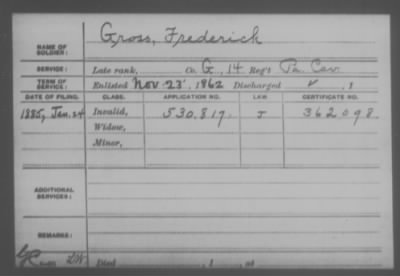 NAME OF SOLDIER: Gross, Frederick
SERVICE: Late rank, Co. G, 14 Reg't Pa. Cav.
TERM OF SERVICE: Enlisted Nov. 23, 1862 Discharged ✓, 1
DATE OF FILING. CLASS. APPLICATION NO. LAW. CERTIFICATE NO.
1885, Jan. 24 Invalid, 530.817. J 362098.
Widow,
Minor,
ADDITIONAL SERVICES:
REMARKS:
Died , 1 , at